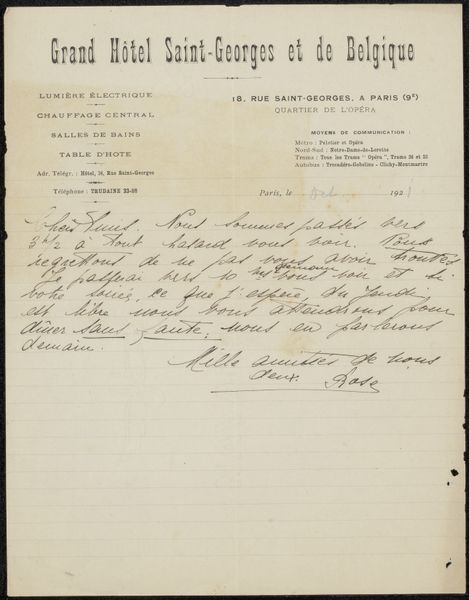 Grand Hôtel Saint-Georges et de Belgique
LUMIÈRE ÉLECTRIQUE
CHAUFFAGE CENTRAL
SALLES DE BAINS
TABLE D'HOTE
Adr. Télégr. : Hôtel, 18, Rue Saint-Georges
Téléphone : TRUDAINE 23-98
18, RUE SAINT-GEORGES, A PARIS (9E)
QUARTIER DE L'OPÉRA
MOYENS DE COMMUNICATION :
Métro : Peletier et Opéra
Nord-Sud : Notre-Dame-de-Lorette
Trams : Tous les Trams "Opéra", Trams
Autobus : Trocadéro-Gobelins - Clichy-Montmartre
Paris, le Oct 192
Chers amis. Nous sommes passés vers
3h 1/2 à tout hasard vous voir. Nous
regrettons de ne pas vous avoir trouvés
Je passerai vers 10 hrs demain vous voir et si
votre soirée, ce que j'espère, du Jeudi
est libre nous vous attendrons pour
dîner sans faute, nous en parlerons
demain.
Mille amitiés de nous
deux. Rose